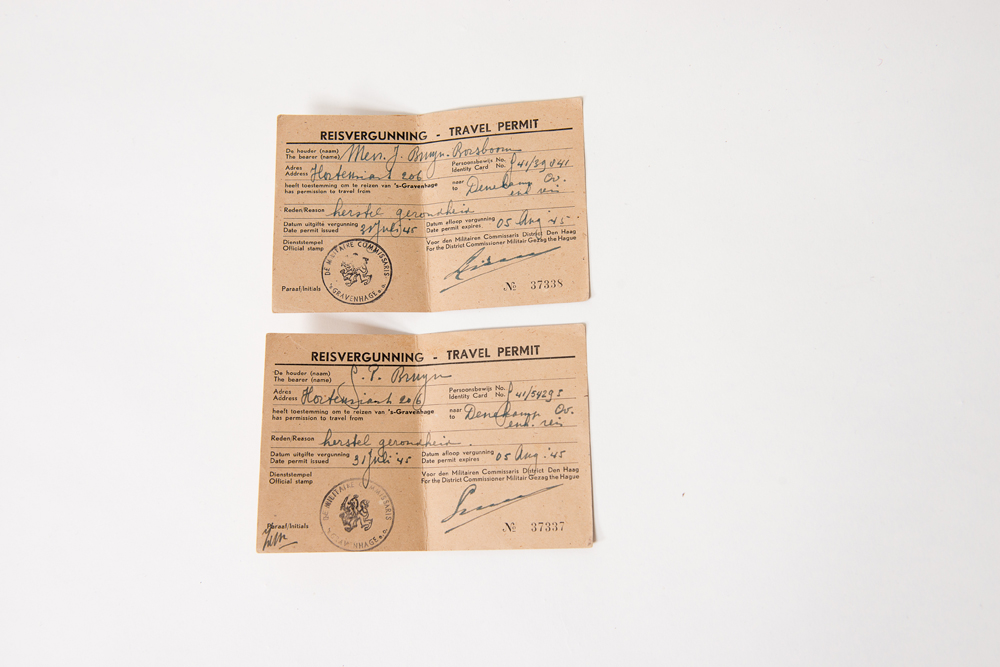 REISVERGUNNING - TRAVEL PERMIT
De houder (naam)
The bearer (name) Mevr. J. Bruyn-Borsboom
Adres Persoonsbewijs No.
Address Hortensiastr 206 Identity Card No.
heeft toestemming om te reizen van 's-Gravenhage naar Denekamp Ov.
has permission to travel from to
Reden/Reason herstel gezondheid
Datum uitgifte vergunning Datum afloop vergunning
Date permit issued 31 Juli '45 Date permit expires 05 Aug '45
Dienststempel Voor den Militairen Commissaris District Den Haag
Official stamp For the District Commissioner Militair Gezag the Hague
DE MILITAIRE COMMISSARIS
'S GRAVENHAGE e.o.
Paraaf/Initials № 37338
REISVERGUNNING - TRAVEL PERMIT
De houder (naam)
The bearer (name) P. Bruyn
Adres Persoonsbewijs No.
Address Hortensiastr 206 Identity Card No.
heeft toestemming om te reizen van 's-Gravenhage naar Denekamp Ov.
has permission to travel from to
Reden/Reason herstel gezondheid.
Datum uitgifte vergunning Datum afloop vergunning
Date permit issued 31 Juli '45 Date permit expires 05 Aug. '45
Dienststempel Voor den Militairen Commissaris District Den Haag
Official stamp For the District Commissioner Militair Gezag the Hague
DE MILITAIRE COMMISSARIS
'S GRAVENHAGE e.o.
Paraaf/Initials № 37337